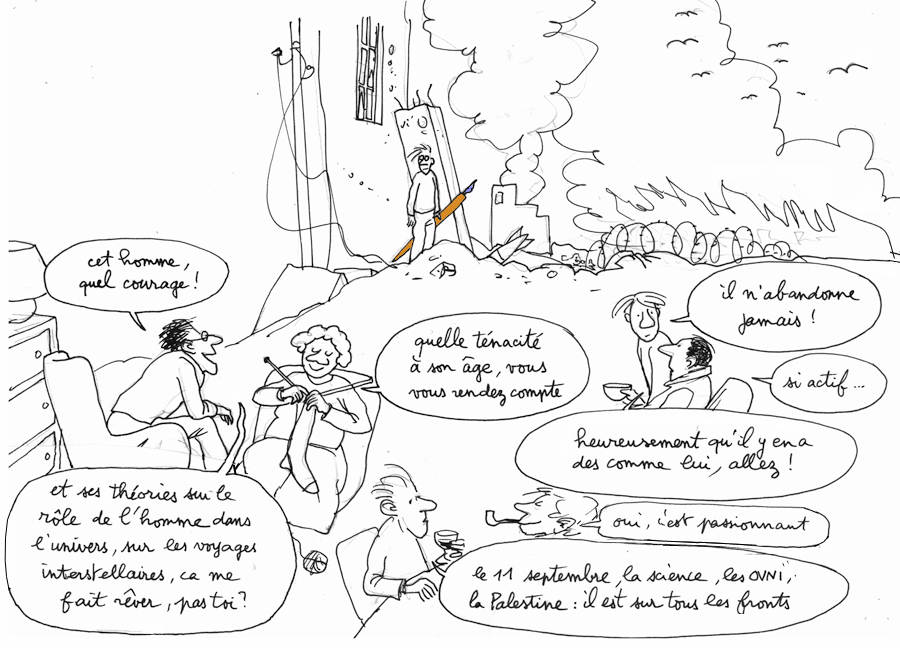 cet homme,
quel courage !
quelle ténacité
à son âge, vous
vous rendez compte
il n'abandonne
jamais !
si actif...
heureusement qu'il y en a
des comme lui, allez !
et ses théories sur le
rôle de l'homme dans
l'univers, sur les voyages
interstellaires, ca me
fait rêver, pas toi ?
oui, c'est passionnant
le 11 septembre, la science, les OVNI,
la Palestine : il est sur tous les fronts